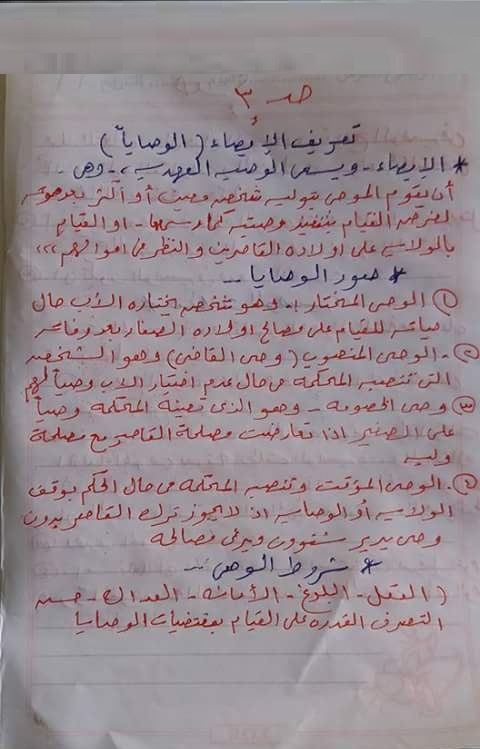 صد ٣
تعريف الإيصاء (الوصاياً)
* الإيصاء - ويسمى الوصيه العهديه - وهى -
أن يقوم الموصى بتوليه شخص معين أو أكثر بعد موته
لغرض القيام بتنفيذ وصيته كما رسمها - او القيام
بالولايه على اولاده القاصرين والنظر فى اموالهم ,,,
* صور الوصايا ..
١) الوصى المختار :- وهو شخص يختاره الأب حال
حياته للقيام على مصالح اولاده الصغار بعد وفاته
٢- الوصى المنصوب (وصى القاضى) وهو الشخص
التى تنصبه المحكمه فى حال عدم اختيار الاب وصياً لهم
٣) وصى الخصومه - وهو الذى تعينه المحكمه وصياً
على الصغير اذا تعارضت مصلحة القاصر مع مصلحة
وليه
٤- الوصى المؤقت وتنصبه المحكمه فى حال الحكم بوقف
الولايه أو الوصايه اذ لا يجوز ترك القاصر بدون
وصى يدير شئوون ويرعى مصالحه
* شروط الوصى ..
( العقل - البلوغ - الأمانه - العداله - حسن
التصرف القدره على القيام بمقتضيات الوصايا